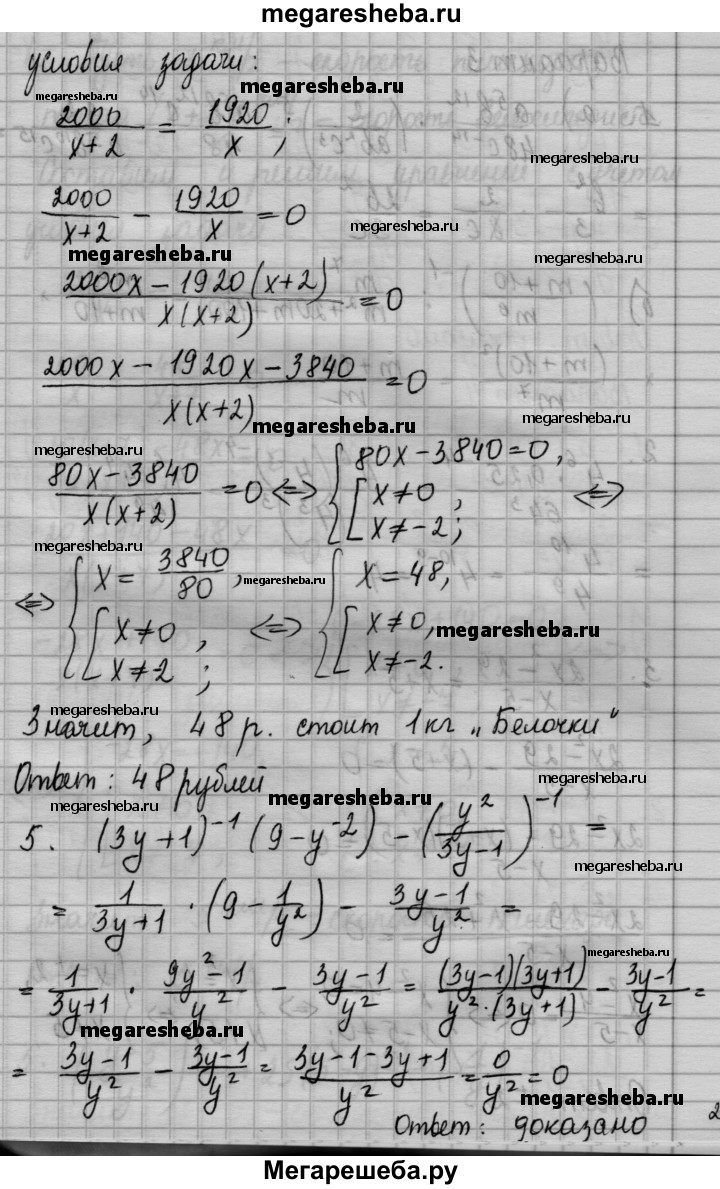 megaresheba.ru
условия задачи:
megaresheba.ru
megaresheba.ru
2000/(x+2) = 1920/x ;
megaresheba.ru
megaresheba.ru
2000/(x+2) − 1920/x = 0
megaresheba.ru
megaresheba.ru
(2000x − 1920(x+2))/(x(x+2)) = 0
megaresheba.ru
(2000x − 1920x − 3840)/(x(x+2)) = 0
megaresheba.ru
megaresheba.ru
megaresheba.ru
(80x − 3840)/(x(x+2)) = 0 ⇔ { 80x − 3840 = 0, [ x ≠ 0, x ≠ −2; ⇔
megaresheba.ru
⇔ { x = 3840/80, [ x ≠ 0, x ≠ −2; ⇔ { x = 48, [ x ≠ 0, x ≠ −2.
megaresheba.ru
megaresheba.ru
megaresheba.ru
Значит, 48 р. стоит 1 кг „Белочки"
megaresheba.ru
Ответ: 48 рублей
megaresheba.ru
megaresheba.ru
5. (3y+1)⁻¹ (9 − y⁻²) − (y²/(3y−1))⁻¹ =
megaresheba.ru
= 1/(3y+1) · (9 − 1/y²) − (3y−1)/y² =
megaresheba.ru
= 1/(3y+1) · (9y²−1)/y² − (3y−1)/y² = ((3y−1)(3y+1))/(y²·(3y+1)) − (3y−1)/y² =
megaresheba.ru
= (3y−1)/y² − (3y−1)/y² = (3y−1−3y+1)/y² = 0/y² = 0
megaresheba.ru
Ответ: доказано
2
Мегарешеба.ру